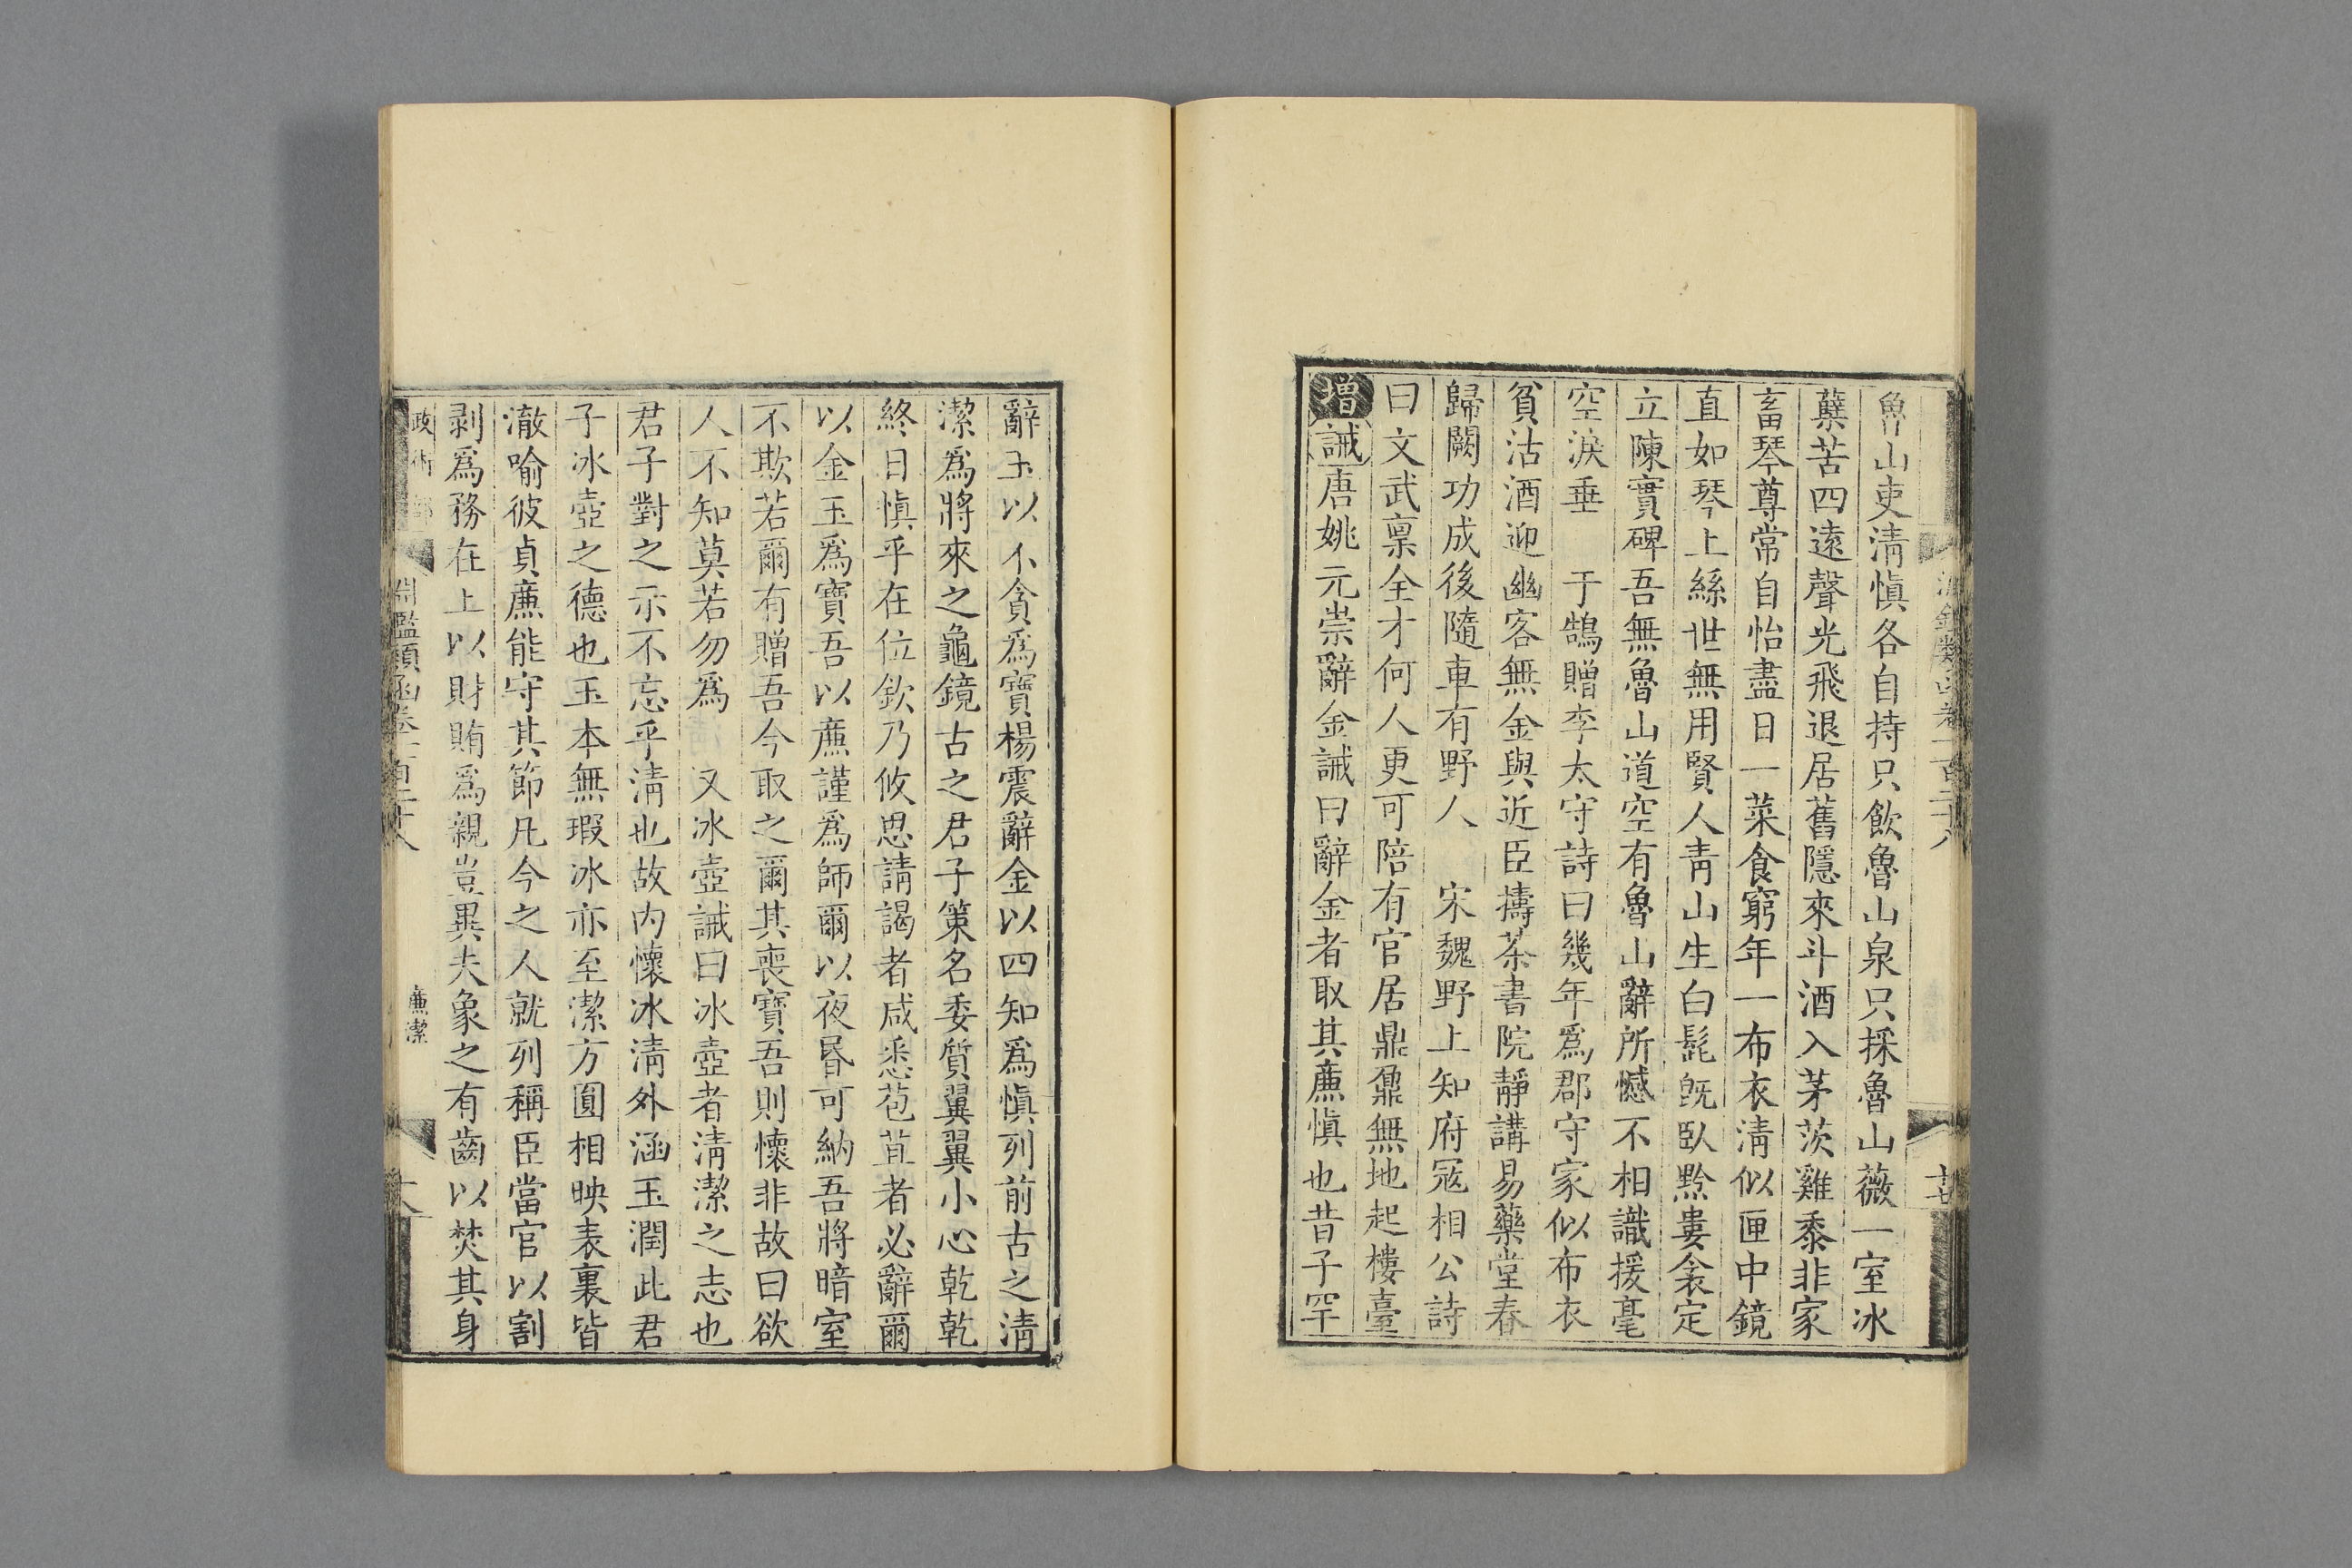 魯山吏清愼各自持只飲魯山泉只採魯山薇一室冰
蘗苦四遠聲光飛退居舊隱來斗酒入茅茨雞黍非家
畜琴尊常自怡盡日一菜食窮年一布衣清似匣中鏡
直如琴上絲世無用賢人靑山生白髭旣臥黔婁衾定
立陳寔碑吾無魯山道空有魯山辭所憾不相識援毫
空淚垂 于鵠贈李太守詩曰幾年爲郡守家似布衣
貧沽酒迎幽客無金與近臣擣茶書院靜講易藥堂春
歸闕功成後隨車有野人 宋魏野上知府寇相公詩
曰文武禀全才何人更可陪有官居鼎鼐無地起樓臺
增誡唐姚元崇辭金誡曰辭金者取其廉愼也昔子罕
辭玉以不貪爲寶楊震辭金以四知爲愼列前古之淸
潔爲將來之龜鏡古之君子策名委質翼翼小心乾乾
終日愼乎在位欽乃攸思請謁者咸悉苞苴者必辭爾
以金玉爲寶吾以廉謹爲師爾以夜昏可納吾將暗室
不欺若爾有贈吾今取之爾其喪寶吾則懷非故曰欲
人不知莫若勿爲 又冰壺誡曰冰壺者淸潔之志也
君子對之示不忘乎淸也故內懷冰淸外涵玉潤此君
子冰壺之德也玉本無瑕冰亦至潔方圓相映表裏皆
澈喻彼貞廉能守其節凡今之人就列稱臣當官以割
剥爲務在上以財賄爲親豈異夫象之有齒以焚其身
政術部
淵鑑類函卷一百二十八
廉潔